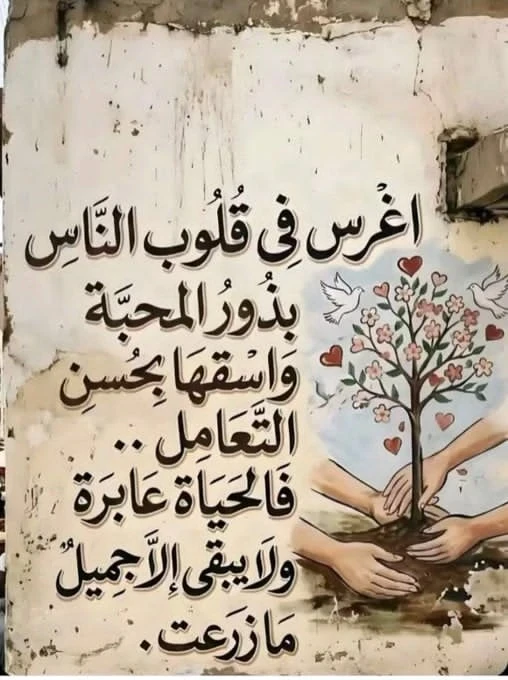 اغْرس فِي قُلُوب النَّاسِ
بذُورُ المحبَّة
وَاسْقهَا بِحُسنِ
التَّعَامِل ..
فَالحَيَاة عَابرَة
ولَا يبقى إلاَّ جَمِيلُ
مَا زَرَعت.